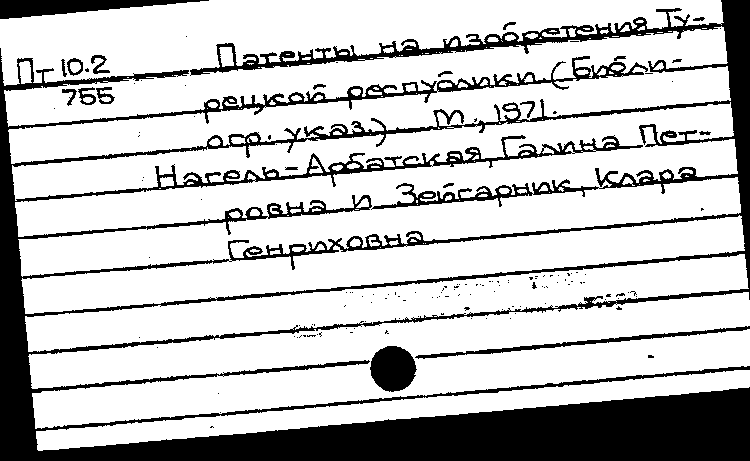 Пт 10.2 Патенты на изобретения Ту-
755 рецкой республики. (Библи-
огр. указ.). М., 1971.
Нагель-Арбатская, Галина Пет-
ровна и Зейгарник, Клара
Генриховна